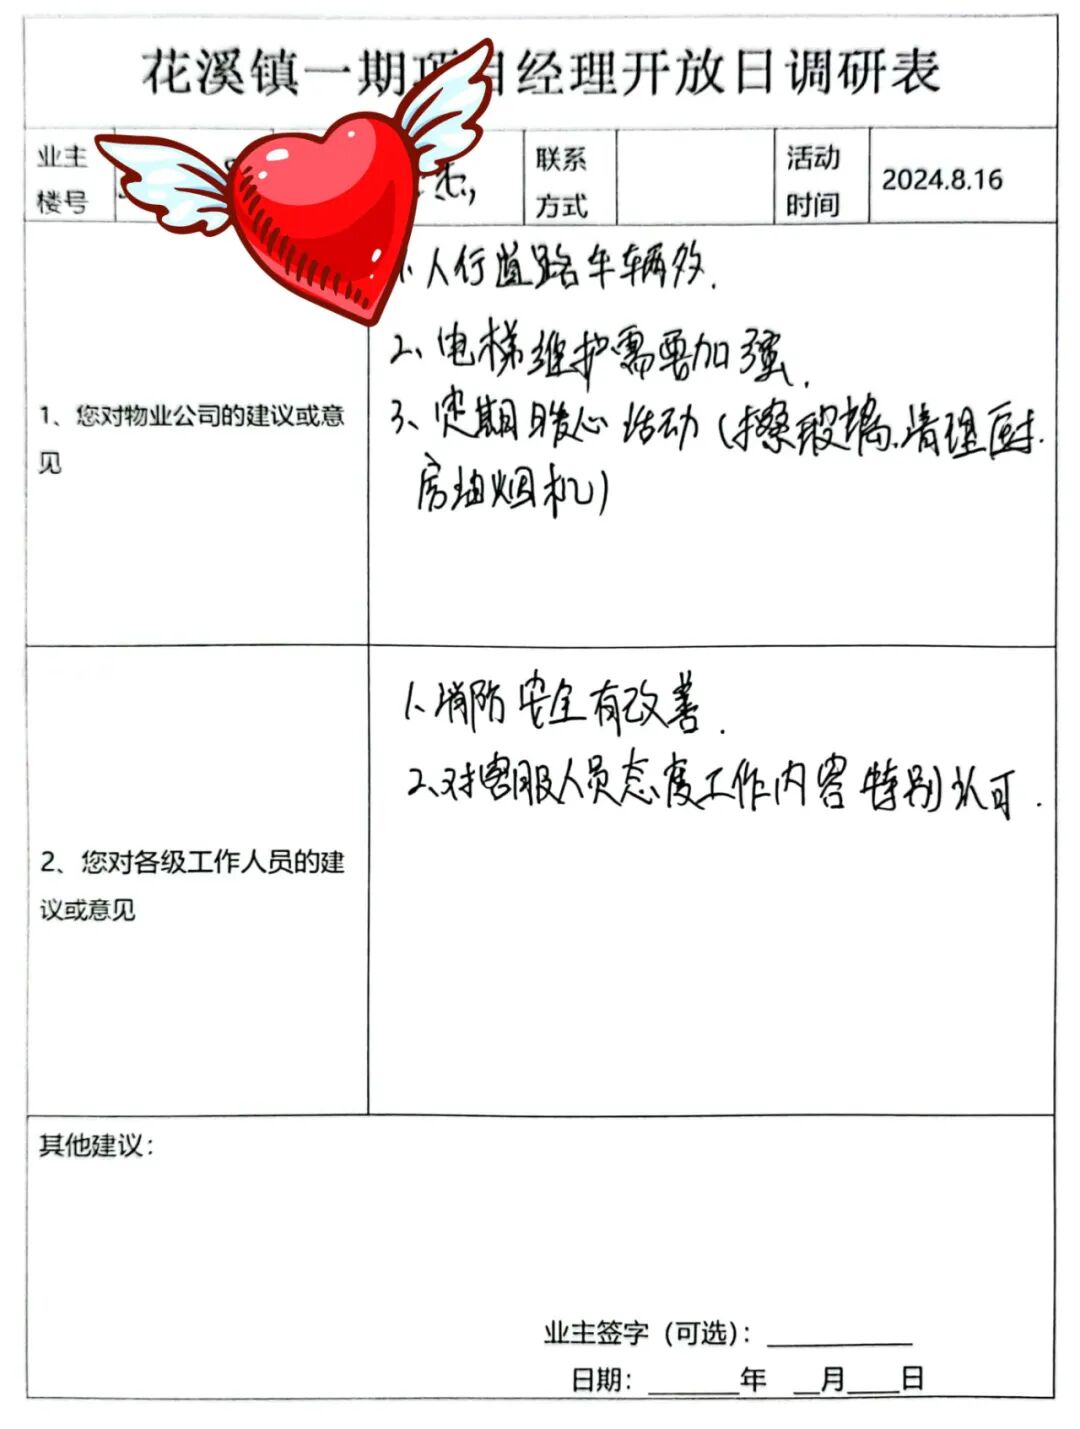 花溪镇一期项目经理开放日调研表
业主
楼号
联系
方式
活动
时间
2024.8.16
1、您对物业公司的建议或意
见
1、人行道路车辆多.
2、电梯维护需要加强.
3、定期暖心活动(擦玻璃、清理厨
房油烟机)
2、您对各级工作人员的建
议或意见
1、消防安全有改善.
2、对客服人员态度工作内容特别认可.
其他建议：
业主签字（可选）：
日期： 年 月 日